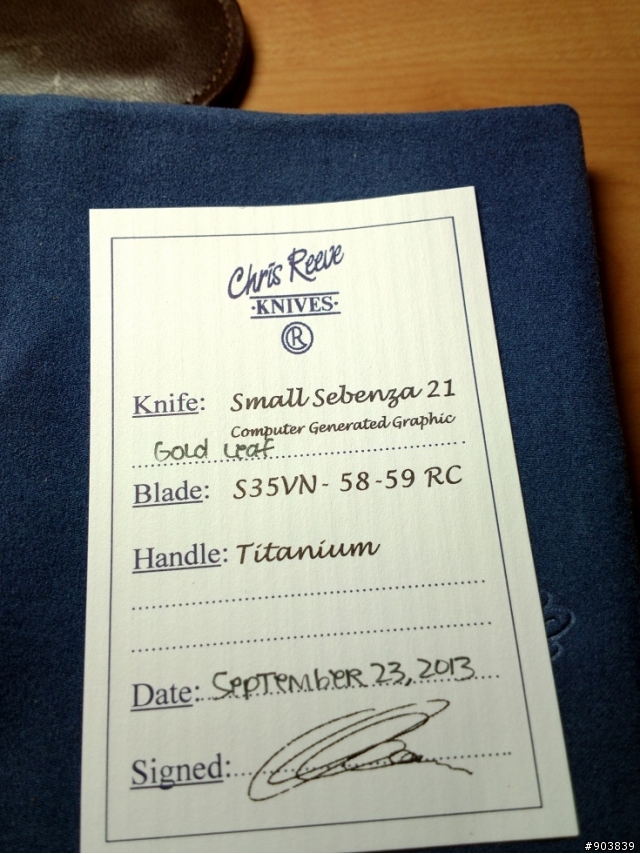 Chris Reeve
·KNIVES·
R
Knife: Small Sebenza 21
Computer Generated Graphic
Gold Leaf
Blade: S35VN- 58-59 RC
Handle: Titanium
Date: September 23, 2013
Signed:
#903839